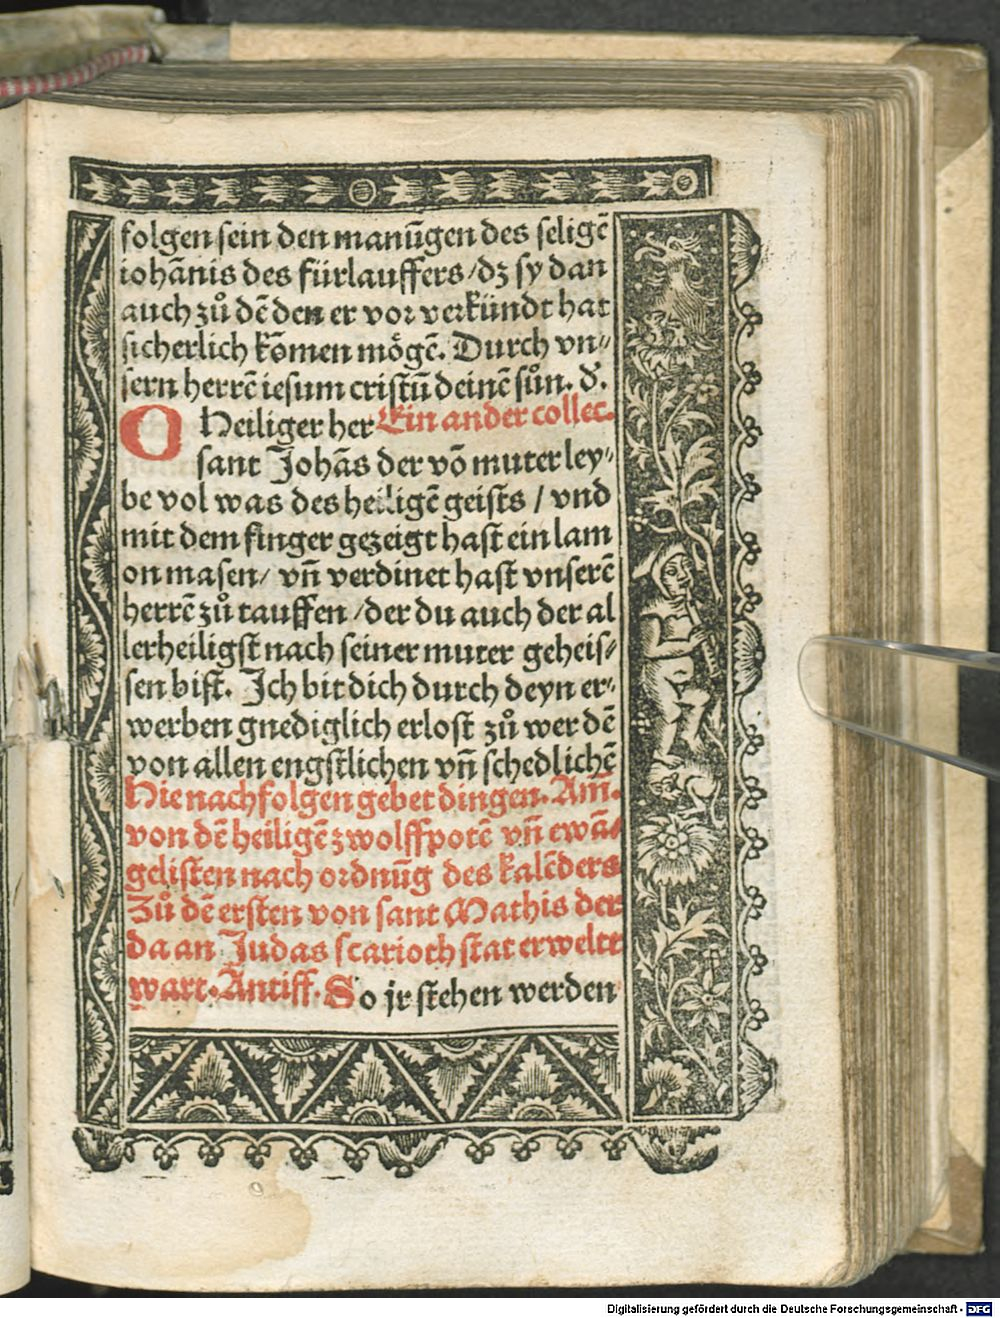 folgen sein den manũgen des seligẽ
iohãnis des fürlauffers / dz sy dan
auch zů dẽ den er vor verkündt hat
sicherlich kõmen mögẽ. Durch vn⸗
sern herrẽ iesum cristũ deinẽ sůn. d.
O Heiliger her Ein ander collec.
sant Johãs der võ muter ley⸗
be vol was des heiligẽ geists / vnd
mit dem finger gezeigt hast ein lam
on masen / vñ verdinet hast vnserẽ
herrẽ zů tauffen / der du auch der al
lerheiligst nach seiner muter geheis⸗
sen bist. Ich bit dich durch deyn er⸗
werben gnediglich erlost zů werdẽ
von allen engstlichen vñ schedlichẽ
Hie nachfolgen gebet dingen. Am̃.
von dẽ heiligẽ zwolffpotẽ vñ ewã⸗
gelisten nach ordnũg des kalẽders
Zů dẽ ersten von sant Mathis der
da an Judas scarioth stat erwelt
wart. Antiff. So jr stehen werden
Digitalisierung gefördert durch die Deutsche Forschungsgemeinschaft - DFG